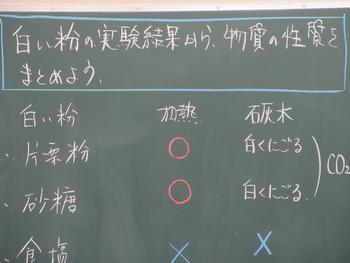 白い粉の実験結果から、物質の性質を
まとめよう。
白い粉 加熱 石灰水
・片栗粉 ○ 白くにごる
・砂糖 ○ 白くにごる CO₂
・食塩 × ×